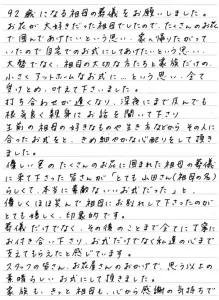 92歳になる祖母の葬儀をお願いしました。
お花が大好きだった祖母でしたので、たくさんのお花
で囲んであげたいという思い、家へ帰りたがって
いたので自宅でのお式にしてあげたいという思い、
大勢でなく、祖母の大切な方たちと家族だけの、
小さくアットホームなお式に…という思い、全て
受けとめ、叶えて下さいました。
打ち合わせが遅くなり、深夜にまで及んでも
根気良く親身にお話を聞いて下さり
生前の祖母の好きなものや生き方などから その人に
合ったお式をと、きめ細やかな心配りをして頂き
ました。
優しい色のたくさんのお花に囲まれた祖母の葬儀
に来て下さった皆さんが「とても山田さん(祖母の名)
らしくて、本当に素敵ないいお式だった」と、
優しくほほ笑んで祖母にお別れして下さったのが
とても嬉しく、印象的です。
葬儀だけでなく、その後のことまで全てに丁寧に
お付き合い下さり、お式だけでなく私達の心まで
支えてもらえたと感じています。
スタッフの皆さん、お花屋さんのおかげで、思う以上の
素晴らしいお式にして頂きました。
家族も、きっと祖母も、心から感謝の気持ちで